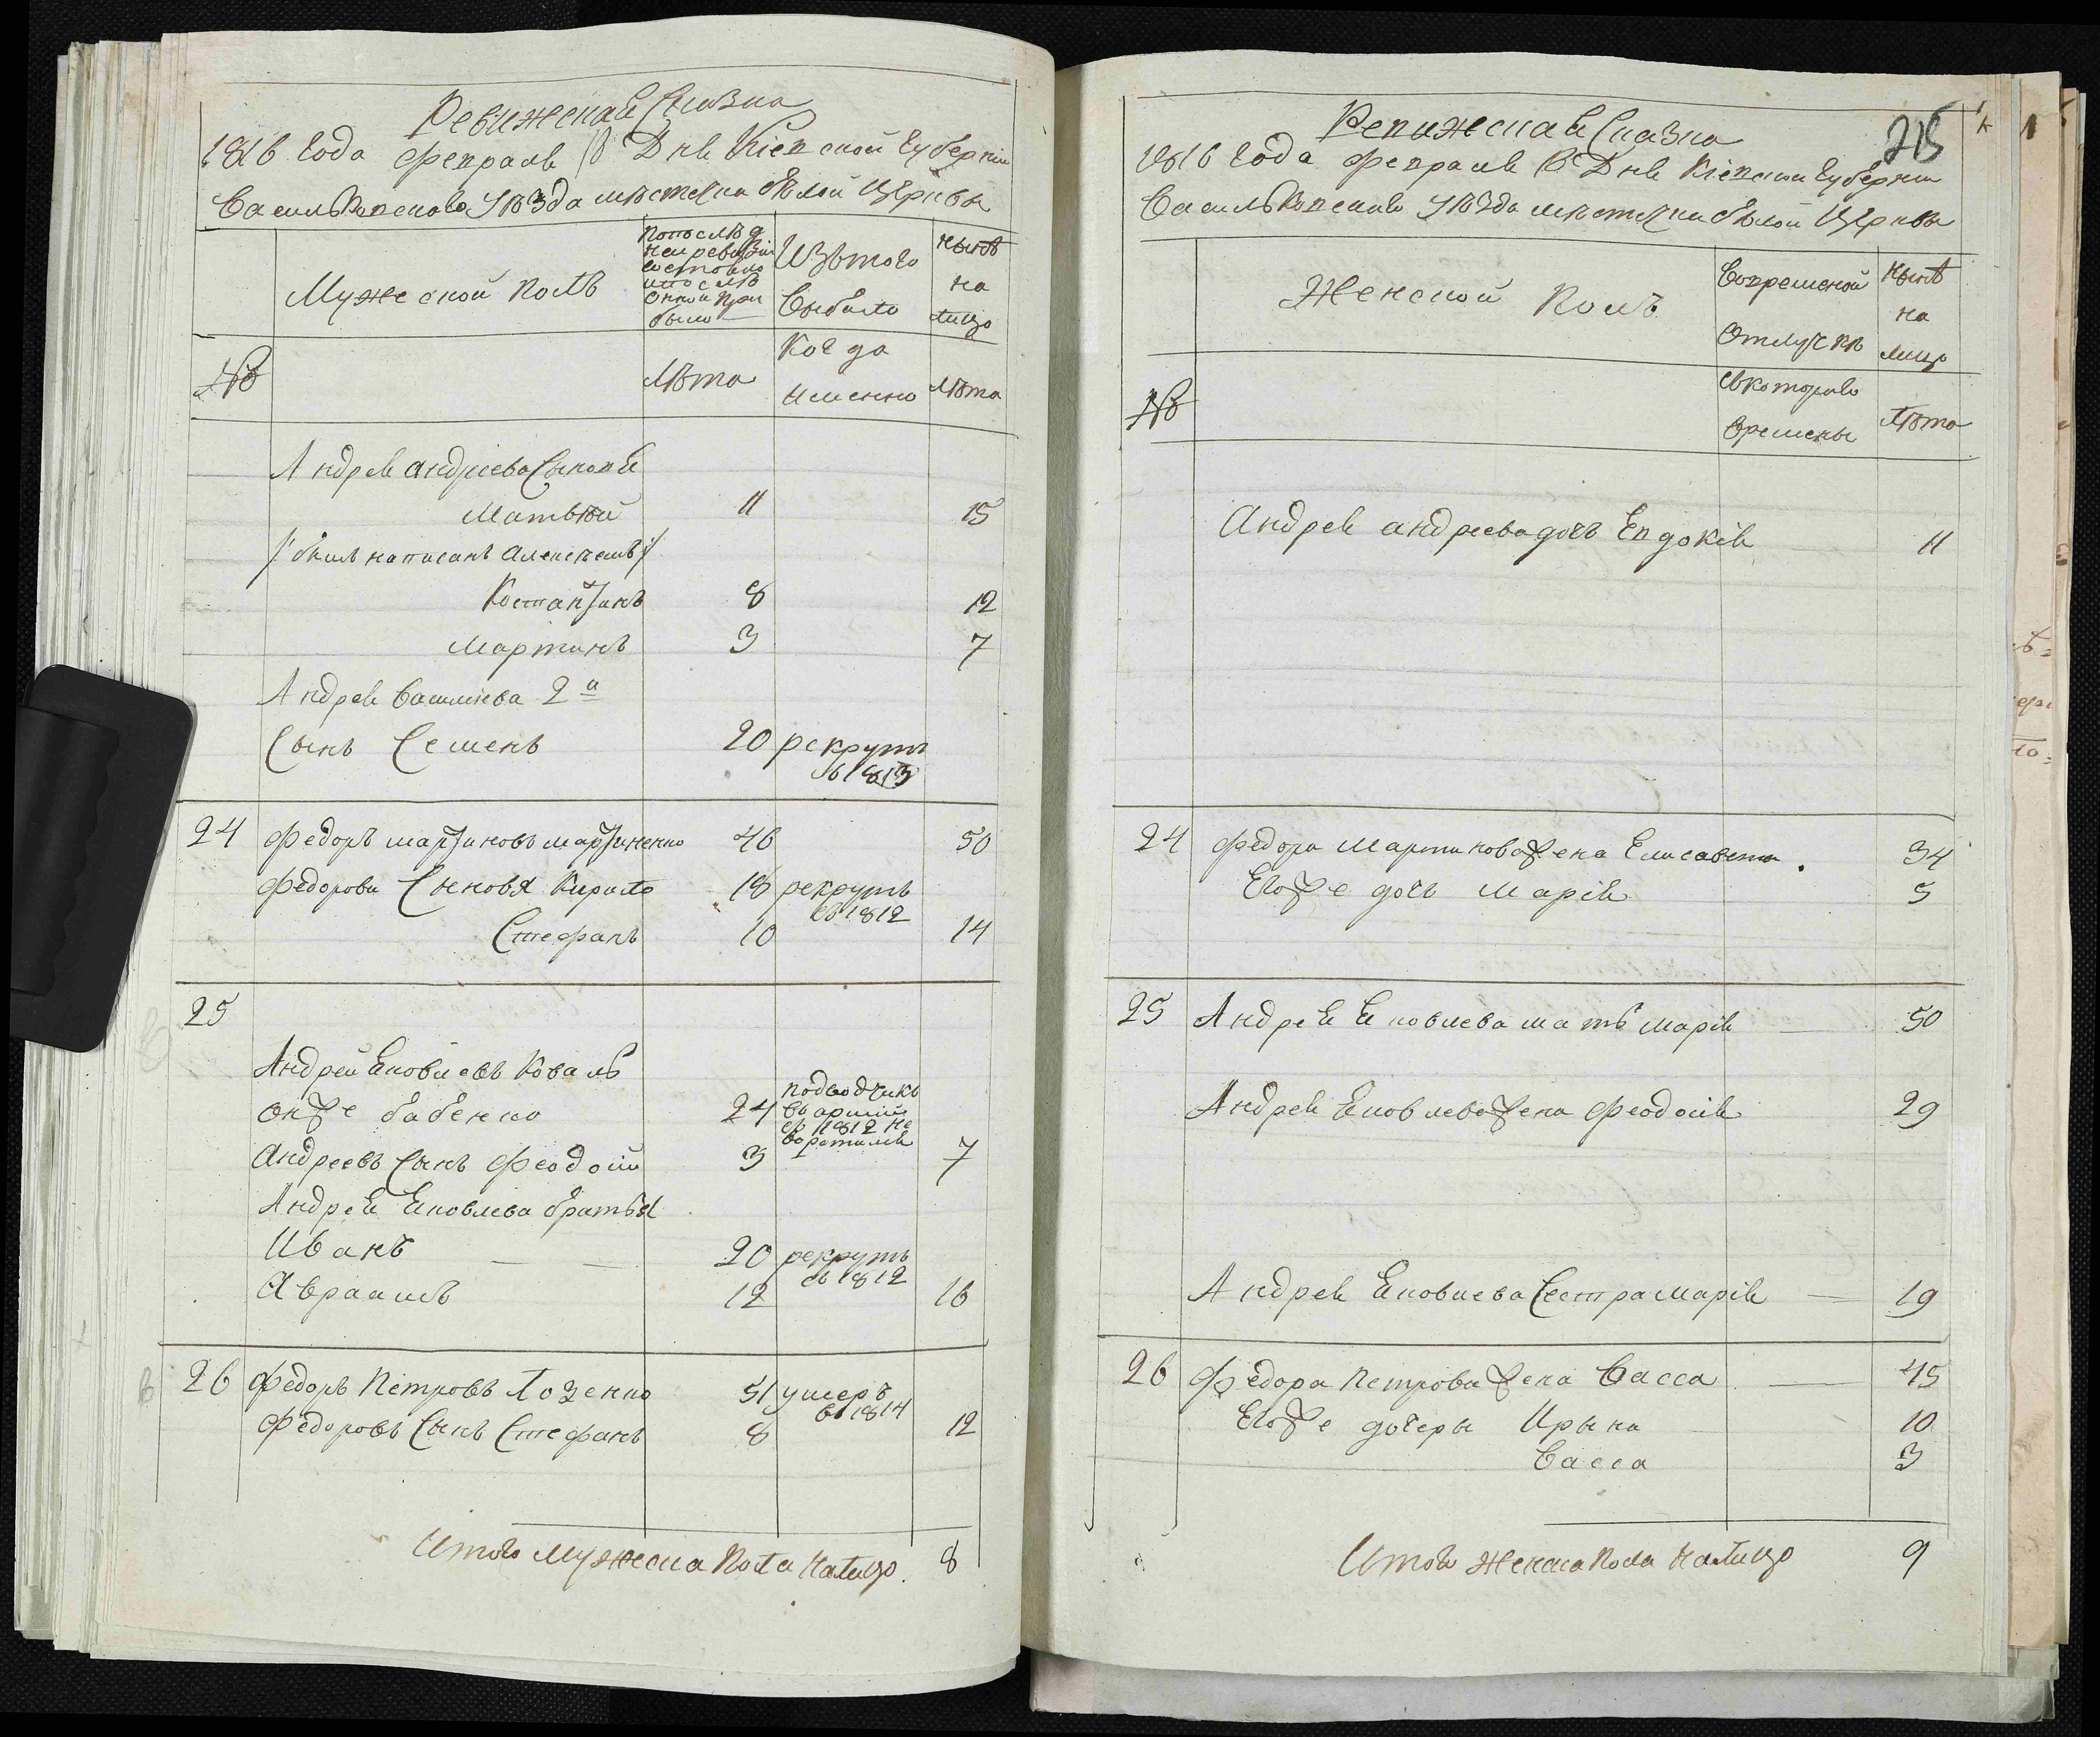 Ревижская Сказка
1816 Года Февраля 18 Дня Кіевской Губерніи
Васильковского Уѣзда мѣстечка бѣлой Церквы
Мужеской полъ
По послѣд
ней ревизіи
состояло
и послѣ
оной при
было
Изътого
Выбыло
Нынѣ
на
лицо
№
Лѣта
Когда
именно
Лѣта
Андрея андреева Сыновья
Матвѣй 11 15
/: былъ написанъ Алексѣемъ :/
Костантинъ 8 12
Мартинъ 3 7
Андрея Василіева 2й
Сынъ Семенъ 20 рекрутъ
въ 1813
24 Федоръ мартиновъ мартиненко 46 50
Федорови Сыновя Кирило 18 рекрутъ
въ 1812
Стефанъ 10 14
25
Андрей Яковлевъ Коваль
онже бабенко 24 подводчикъ
въ арміи
съ 1812 не
воротился
Андреевъ Сынъ Феодосій 3 7
Андрея Яковлева братья
Иванъ 20 рекрутъ
въ 1812
Авраамъ 12 16
26 Федоръ Петровъ Лозенко 51 умеръ
въ 1814
Федоровъ Сынъ Стефанъ 8 12
Итого мужеска пола налицо 8
215
Ревижская Сказка
1816 Года Февраля 18 Дня Кіевской Губерніи
Васильковского Уѣзда мѣстечка бѣлой Церквы
Женской полъ
Вовременной
Отлучкѣ
Нынѣ
на
лицо
№
Съкоторого
времены
Лѣта
Андрея андреева дочъ Евдокія 11
24 Федора Мартинова жена Елисавета 34
Егоже дочъ Марія 5
25 Андрея Яковлева мать марія 50
Андрея Яковлева жена Феодосія 29
Андрея Яковлева Сестра марія 19
26 Федора Петрова жена Васса 45
Егоже дочеры Ирына 10
Васса 3
Итого женска пола налицо 9